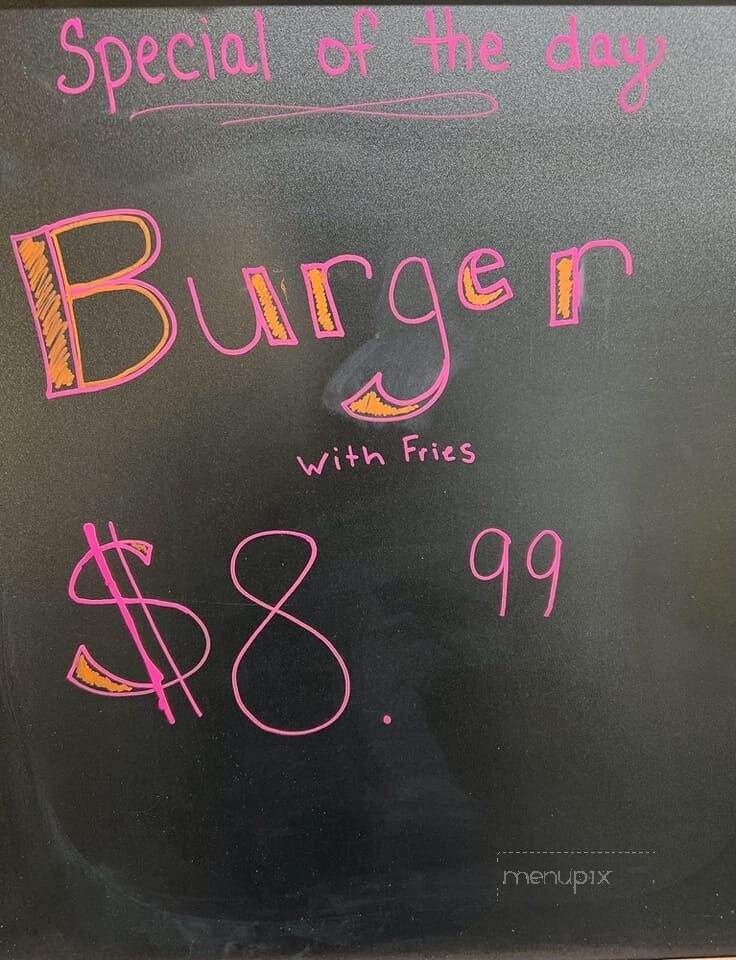 Special of the day
Burger
with Fries
$8.99
menupix